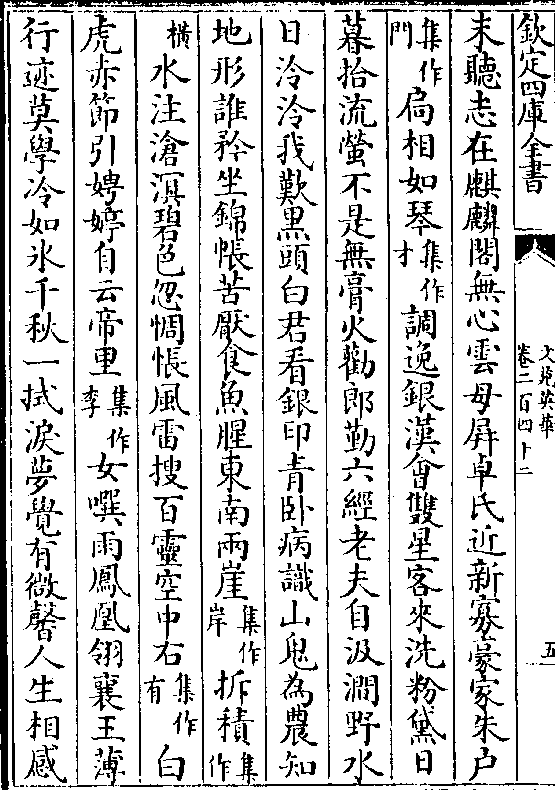 欽定四庫全書
文苑英華
卷二百四十二
五
未聽志在麒麟閣無心雲母屏卓氏近新寡豪家朱户
集作門扃相如琴集作才調逸銀漢會雙星客來洗粉黛日
暮拾流螢不是無膏火勸郎勤六經老夫自汲澗野水
日泠泠我歎黒頭白君看銀印青卧病識山鬼為農知
地形誰矜坐錦帳苦厭食魚腥東南兩崖集作岸拆積集作
橫水注滄溟碧色忽惆悵風雷搜百靈空中右集作有白
虎赤節引娉婷自云帝里集作季女噀雨鳳凰翎襄王薄
行迹莫學冷如氷千秋一拭淚夢覺有微馨人生相感